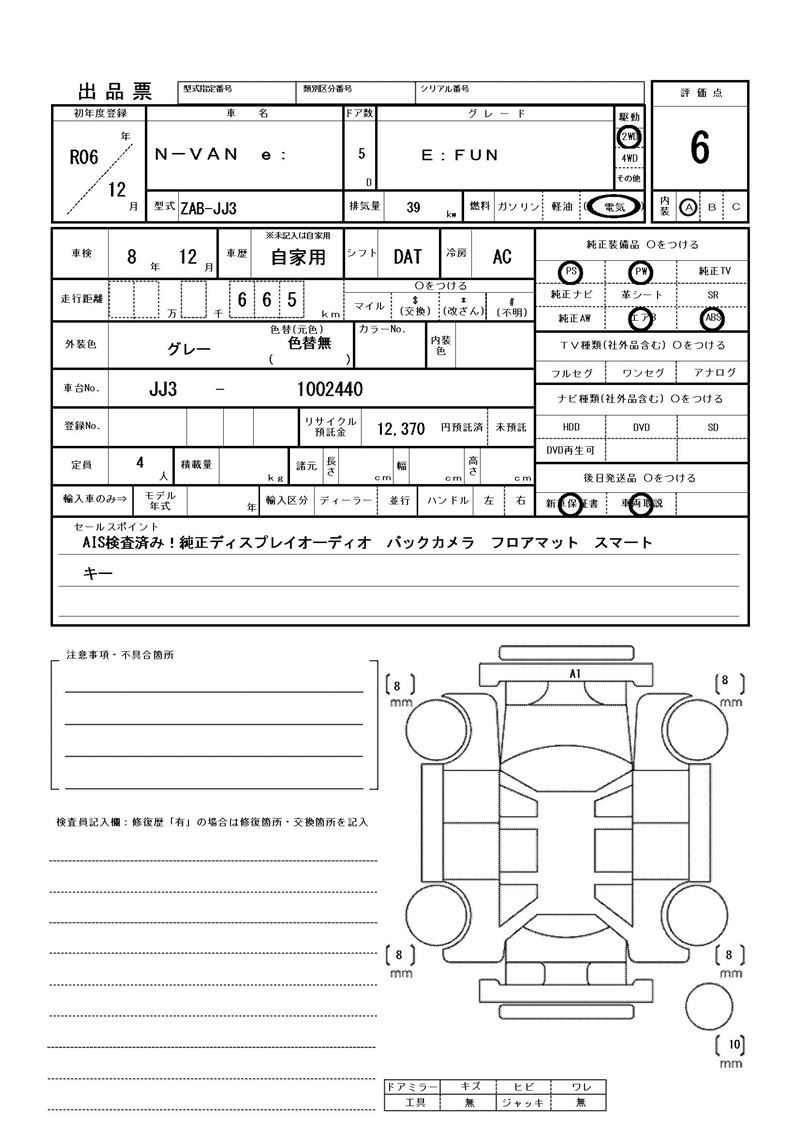 出品票 型式指定番号 類別区分番号 シリアル番号 評価点
初年度登録 車名 ドア数 グレード 駆動
R06 年 12 月 N－VAN e： 5 D E：FUN 2WD 4WD その他 6
型式 ZAB-JJ3 排気量 39 kw 燃料 ガソリン 軽油 (電気) 内装 A B C
車検 8 年 12 月 車歴 ※未記入は自家用 自家用 シフト DAT 冷房 AC
純正装備品 〇をつける
PS PW 純正TV
純正ナビ 革シート SR
純正AW エアB ABS
走行距離 万 千 665 km 〇をつける
マイル $(交換) *(改ざん) #(不明)
外装色 グレー 色替(元色) 色替無 ( ) カラーNo. 内装色
TV種類(社外品含む) 〇をつける
フルセグ ワンセグ アナログ
車台No. JJ3 - 1002440
ナビ種類(社外品含む) 〇をつける
HDD DVD SD
DVD再生可
登録No. リサイクル預託金 12,370 円預託済 未預託
定員 4 人 積載量 kg 諸元 長さ cm 幅 cm 高さ cm
後日発送品 〇をつける
新車保証書 車両取説
輸入車のみ⇒ モデル年式 年 輸入区分 ディーラー 並行 ハンドル 左 右
セールスポイント
AIS検査済み！純正ディスプレイオーディオ バックカメラ フロアマット スマート
キー
注意事項・不具合箇所
検査員記入欄：修復歴「有」の場合は修復箇所・交換箇所を記入
A1
[8] mm
[8] mm
[8] mm
[8] mm
[10] mm
ドアミラー キズ ヒビ ワレ
工具 無 ジャッキ 無